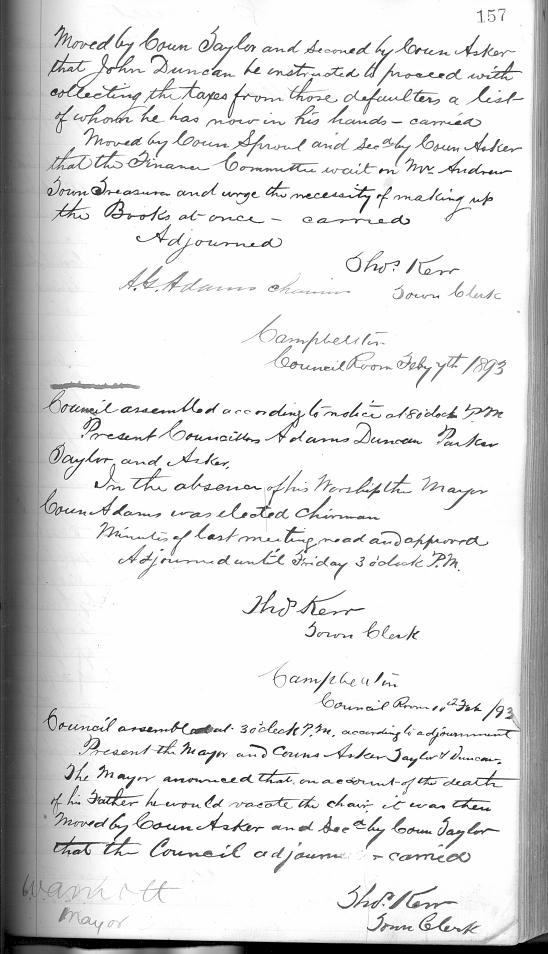 157
Moved by Coun Taylor and seconed by Coun Asker
that John Duncan be instructed to proceed with
collecting the taxes from those defaulters a list
of whom he has now in his hands - carried
Moved by Coun Sproul and Secd by Coun Asker
that the Finance Committee wait on Mr Andrew
Town Treasurer and urge the necessity of making up
the Books at once - carried
Adjourned
Thos Kerr
A.G. Adams chairman Town Clerk
Campbellton
Council Room Feby 7th 1893
Council assembled according to notice at 8 o'clock P.M
Present Councillors Adams Duncan Parker
Taylor and Asker.
In the absence of his Worship the Mayor
Coun Adams was elected Chirman
Minutes of last meeting read and approved
Adjourned until Friday 3 o'clock P.M.
Thos Kerr
Town Clerk
Campbellton
Council Room Feb /93
Council assembled at 3 o'clock P.M. according to adjournment
Present the Mayor and Couns Asker Taylor & Duncan.
The Mayor anounced that on account of the death
of his Father he would vacate the chair. it was then
Moved by Coun Asker and Secd by Coun Taylor
that the Council adjourn - carried
Thos. Kerr
Mayor Town Clerk